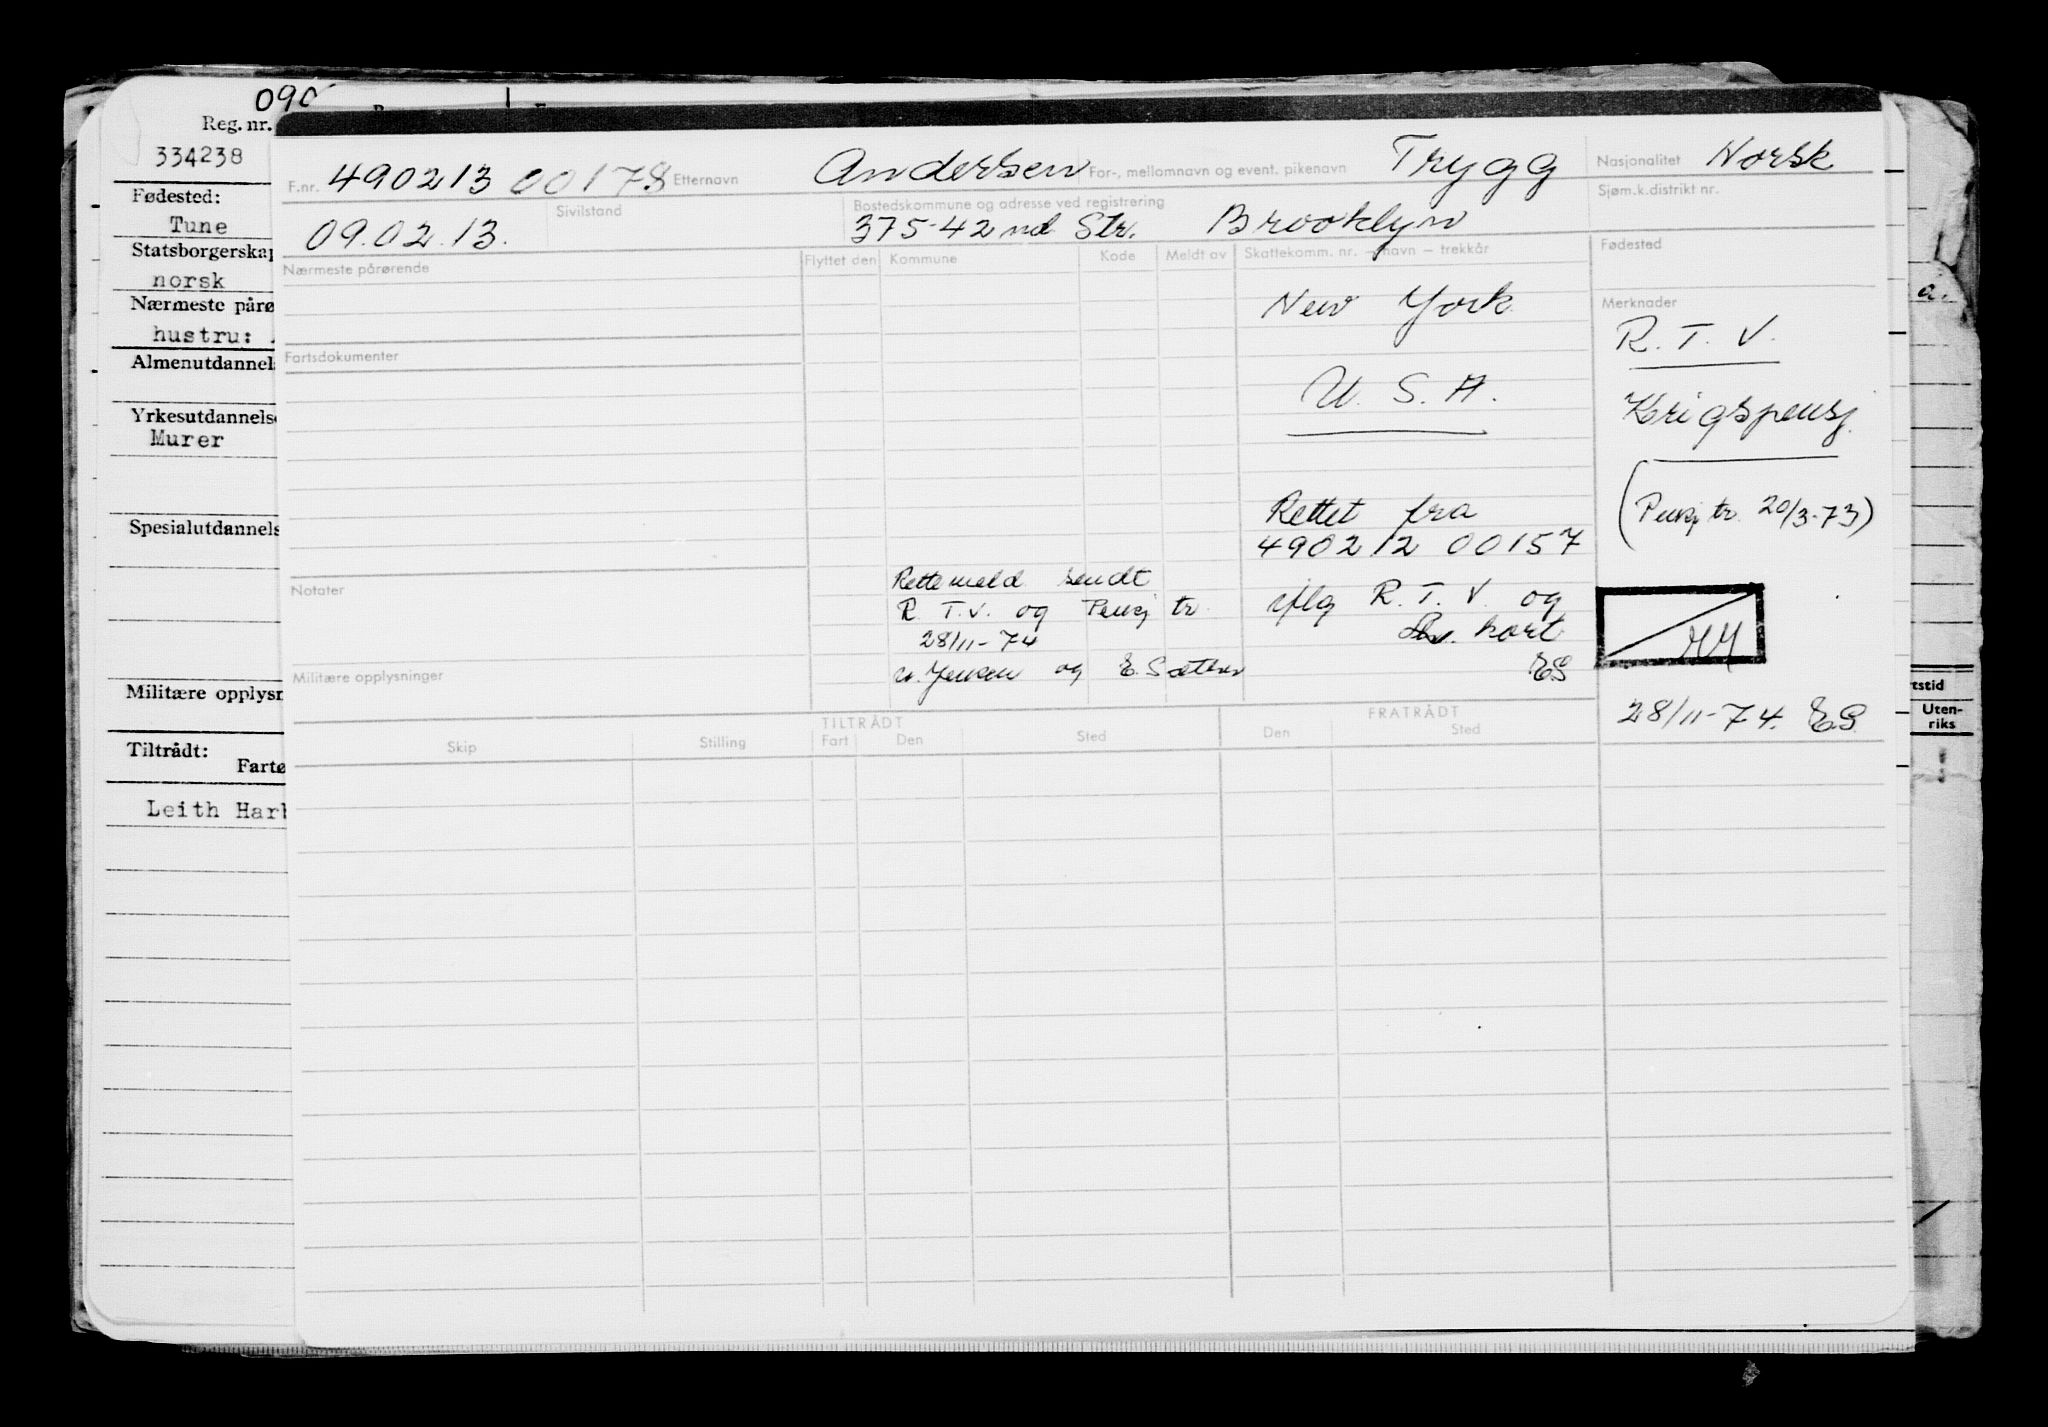 090
Reg. nr.
334238
Fødested:
Tune
Statsborgerskap
norsk
Nærmeste pårø
hustru:
Almenutdannels
Yrkesutdannelse
Murer
Spesialutdannels
Militære opplysn
Tiltrådt:
Fartø
Leith Harb
F.nr. 490213 00178 Etternavn Andersen For-, mellomnavn og event. pikenavn Trygg Nasjonalitet Norsk
09.02.13. Sivilstand Bostedskommune og adresse ved registrering Sjøm.k.distrikt nr.
375-42nd Str. Brooklyn
Nærmeste pårørende Flyttet den Kommune Kode Meldt av Skattekomm. nr. – navn – trekkår Fødested
New York
U. S. A.
Merknader
R. T. V.
Krigspensj.
(Pensj tr. 20/3-73)
Fartsdokumenter
Rettet fra
490212 00157
iflg R. T. V. og
kort
ES
Notater
Rettemeld sendt
R. T.V. og Pensj tr.
28/11-74
v. Jensen og E. Sæther
28/11-74. ES
Militære opplysninger
TILTRÅDT FRATRÅDT
Skip Stilling Fart Den Sted Den Sted
a.
tstid
Uten-
riks